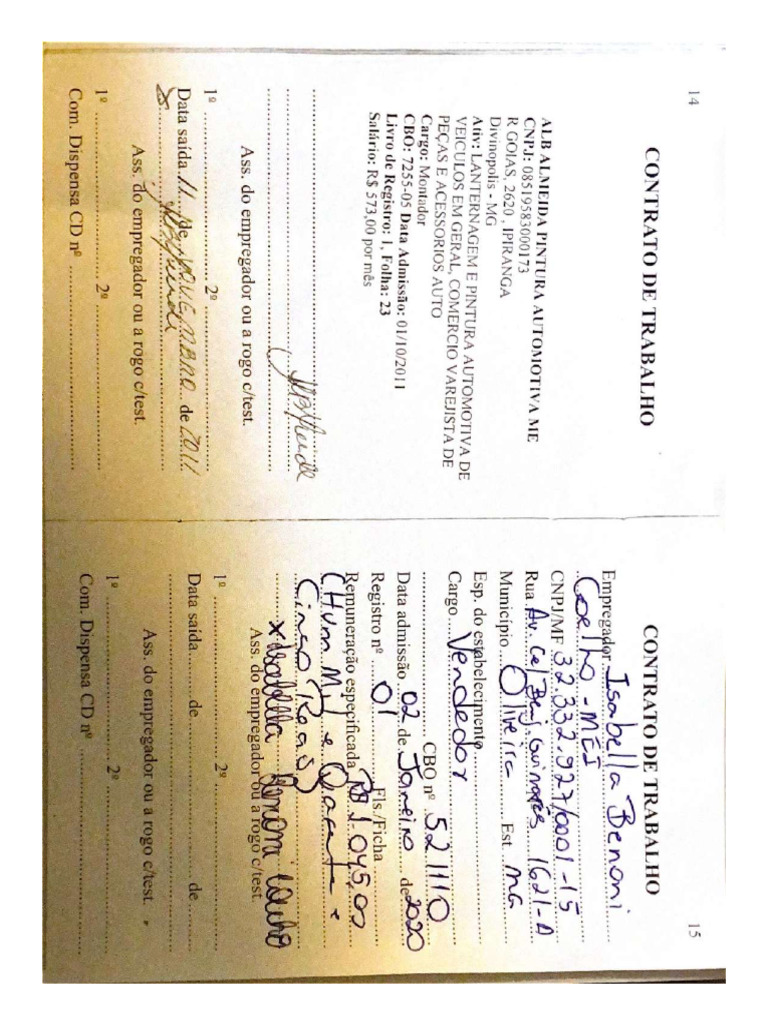 14
CONTRATO DE TRABALHO
ALB ALMEIDA PINTURA AUTOMOTIVA ME
CNPJ: 08519583000173
R GOIAS, 2620, IPIRANGA
Divinopolis - MG
Ativ: LANTERNAGEM E PINTURA AUTOMOTIVA DE
VEICULOS EM GERAL, COMERCIO VAREJISTA DE
PEÇAS E ACESSORIOS AUTO
Cargo: Montador
CBO: 7255-05 Data Admissão: 01/10/2011
Livro de Registro: 1, Folha: 23
Salário: R$ 573,00 por mês
Ass. do empregador ou a rogo c/test.
1º 2º
Data saída 11 de NOVEMBRO de 2011
Ass. do empregador ou a rogo c/test.
1º 2º
Com. Dispensa CD nº
15
CONTRATO DE TRABALHO
Empregador Isabella Benoni
Coelho - MEI
CNPJ/MF 32.332.927/0001-15
Rua Av. Cel Benj. Guimarães 1621-A
Município Oliveira Est. MG
Esp. do estabelecimento
Cargo Vendedor
CBO nº 521110
Data admissão 02 de Janeiro de 2020
Registro nº 01 Fls./Ficha
Remuneração especificada R$ 1.045,00
(Hum Mil e Quarenta e
Cinco Reais)
x Isabella Benoni Coelho
Ass. do empregador ou a rogo c/test.
1º 2º
Data saída de de
Ass. do empregador ou a rogo c/test.
1º 2º
Com. Dispensa CD nº